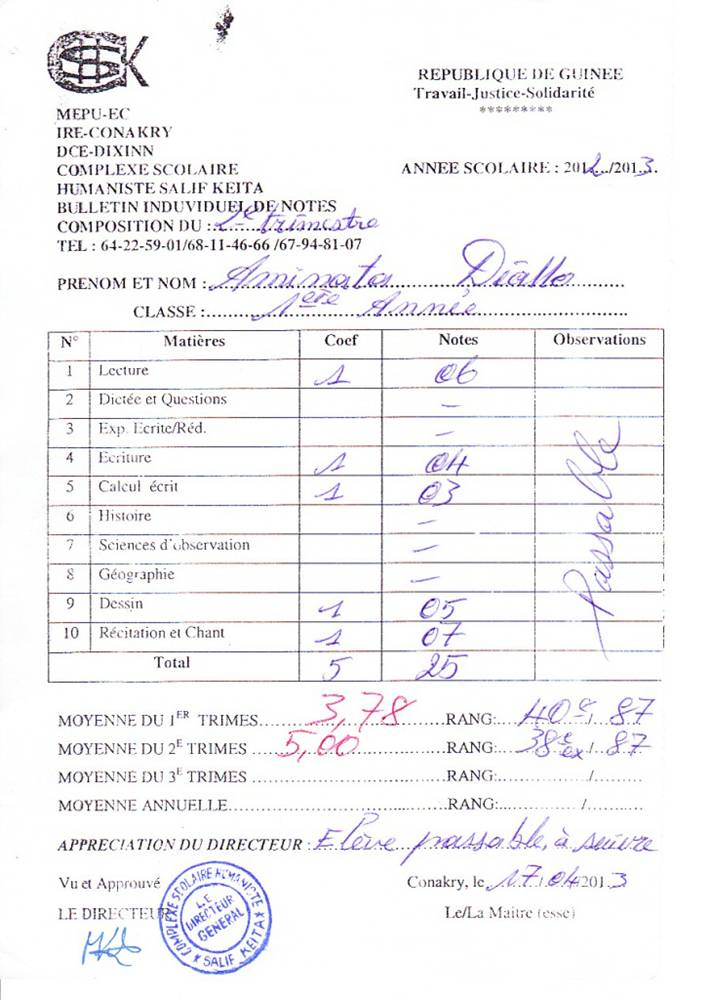 HSK
REPUBLIQUE DE GUINEE
Travail-Justice-Solidarité
*********
MEPU-EC
IRE-CONAKRY
DCE-DIXINN
COMPLEXE SCOLAIRE
HUMANISTE SALIF KEITA
ANNEE SCOLAIRE : 2012../2013.
BULLETIN INDUVIDUEL DE NOTES
COMPOSITION DU : 2e trimestre
TEL : 64-22-59-01/68-11-46-66 /67-94-81-07
PRENOM ET NOM : Aminata Diallo
CLASSE : 1ère Année
N° Matières Coef Notes Observations
1 Lecture 1 06
2 Dictée et Questions —
3 Exp. Ecrite/Réd. —
4 Ecriture 1 04
5 Calcul écrit 1 03
6 Histoire —
7 Sciences d'observation —
8 Géographie —
9 Dessin 1 05
10 Récitation et Chant 1 07
Passable
Total 5 25
MOYENNE DU 1ER TRIMES 3,78 RANG: 40e / 87
MOYENNE DU 2E TRIMES 5,00 RANG: 38e ex / 87
MOYENNE DU 3E TRIMES RANG: /
MOYENNE ANNUELLE RANG: /
APPRECIATION DU DIRECTEUR : Elève passable, à suivre
Vu et Approuvé Conakry, le 17/04/2013
LE DIRECTEUR Le/La Maitre (esse)
COMPLEXE SCOLAIRE HUMANISTE
LE
DIRECTEUR
GENERAL
* SALIF KEITA *